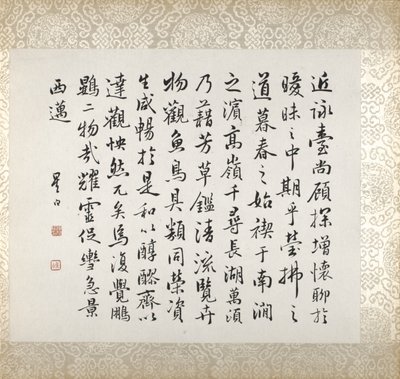 近詠臺尚顧探增懷聊於
曖昧之中期乎瑩拂之
道暮春之始禊于南澗
之濱高嶺千尋長湖萬頃
乃藉芳草鑑清流覽卉
物觀魚鳥具類同榮資
生咸暢於是和以醇醪齊以
達觀怏然兀矣焉復覺鵬
鷃二物哉耀靈促轡急景
西邁